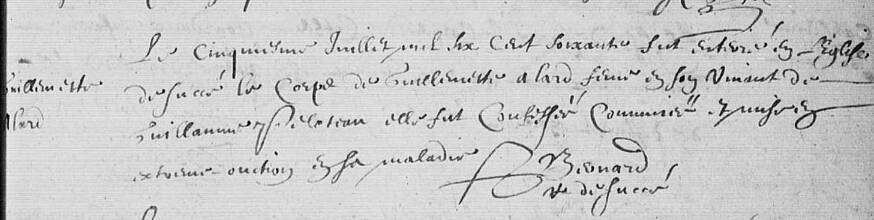 Guillemette
Alard
Le cinquiesme Juillet mil six cent soixante fut enterré en l'eglise
de succé le corps de Guillemette alard feme en son vivant de
Guillaume eloteau elle fut Confessée Communiée et mise en
extreme onction en sa maladie
Bernard
de succé